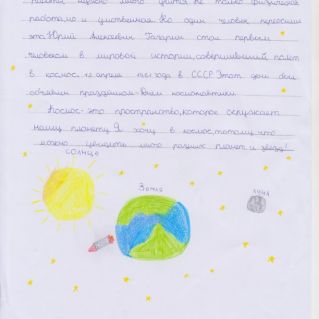 работы, нужно много учится не только физической
работало и умственная. Но один человек перенесши
это. Юрий Алексеевич Гагарин стал первым
человеком в мировой истории, совершивший полёт
в космос. 12 апреля 1961 года в СССР. Этот день был
объявлен праздником-Днём космонавтики.
Космос-это пространство, которое окружает
нашу планету. Я хочу в космос, потому что
можно увидеть много разных планет и звёзд!
СОЛНЦЕ
Земля
ЛУНА